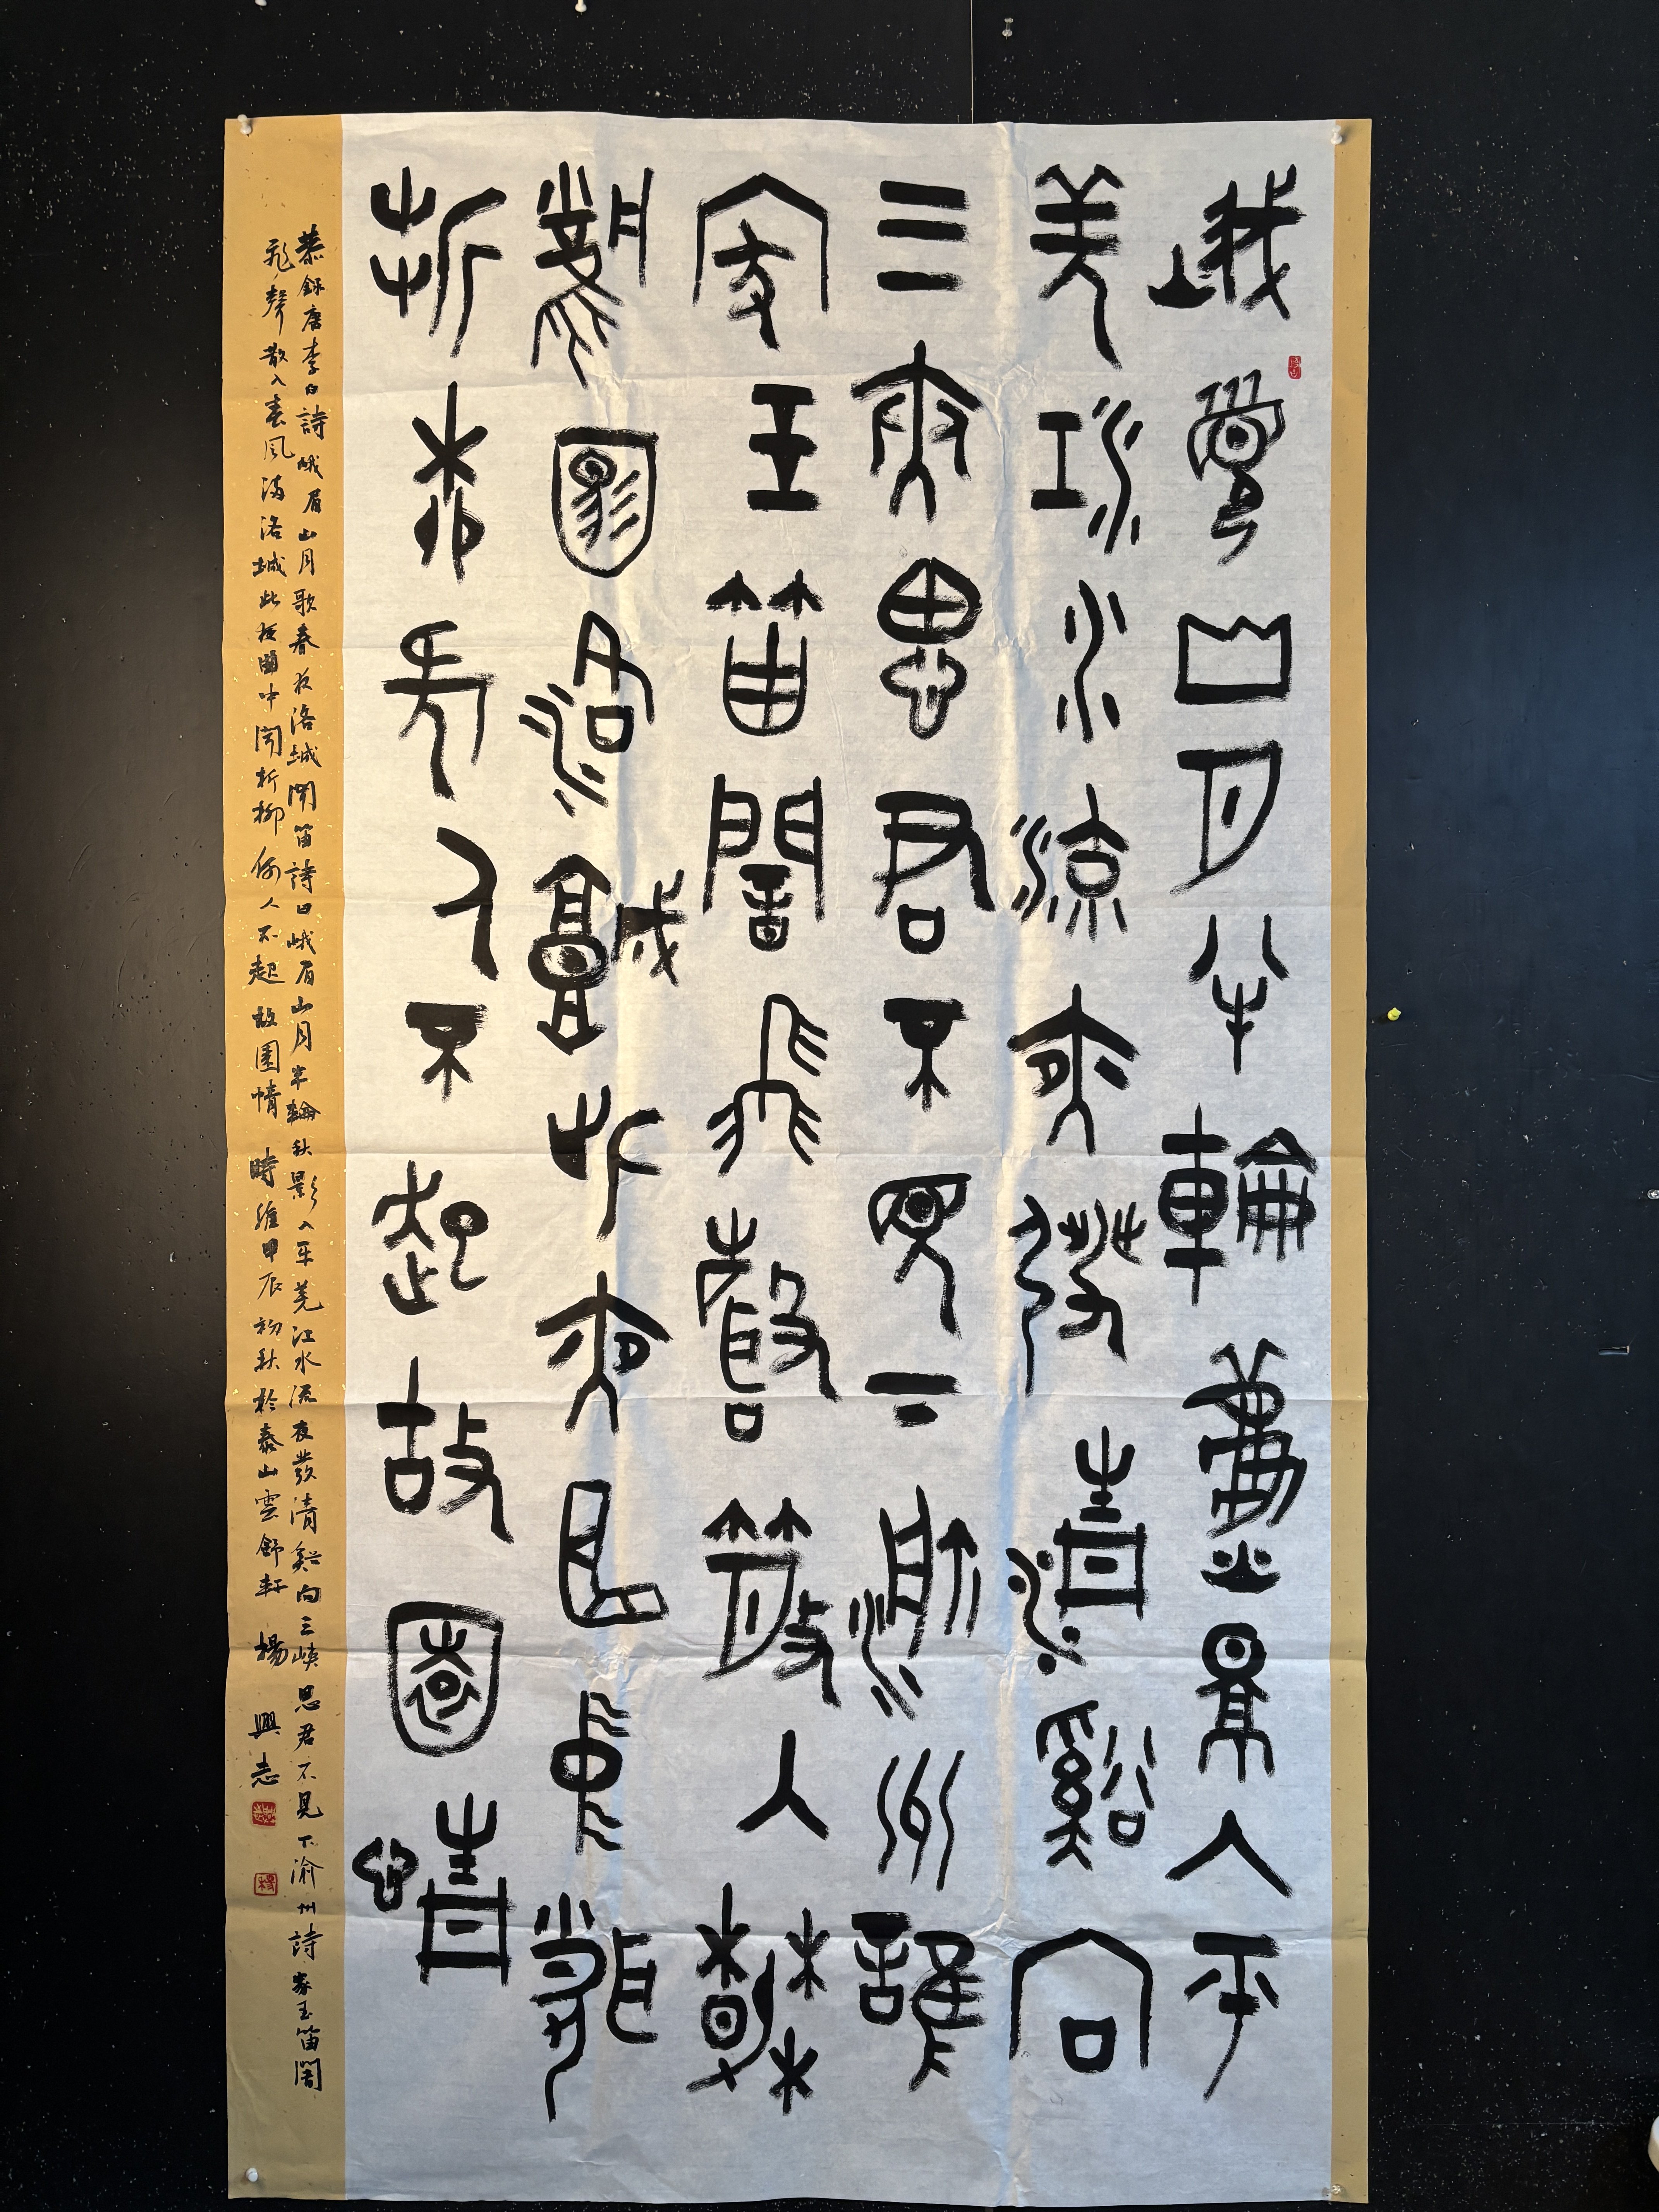 峨眉山月半輪秋景入平
羌江水流夜發清谿向
三夾思君不見下渝州誰
家玉笛闇飛聲散入春
風滿洛城此夜曲中聞
折柳何人不起故園情
恭錄唐李白詩峨眉山月歌春夜洛城聞笛詩曰峨眉山月半輪秋影入平羌江水流夜發清谿向三峽思君不見下渝州詩家玉笛闇
飛聲散入春風滿洛城此夜曲中聞折柳何人不起故園情 時維甲辰初秋於泰山雲舒軒 楊興志